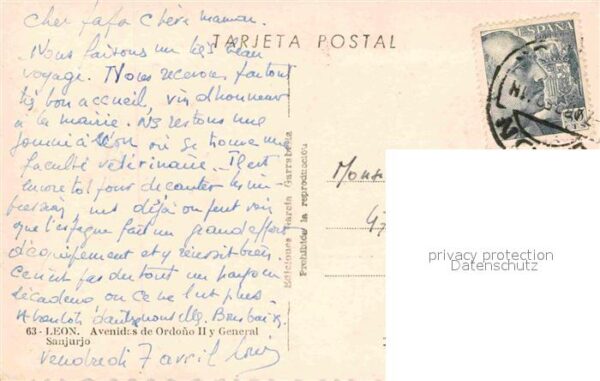 Cher Papa Chère maman.
TARJETA POSTAL
Nous faisons un très beau
voyage. Nous recevons partout
très bon accueil, vin d'honneur
à la mairie. Ns restons une
journée à Léon où se trouve une
faculté vétérinaire. Il est
encore tôt pour décanter les im-
pressions, mais déjà on peut voir
que l'espagne fait un grand effort
d'équipement et y réussit bien.
Ce n'est pas du tout un pays en
décadence ou ce ne l'est plus.
A bientôt d'autres nouvelles. Bons baisers.
63 - LEON. Avenidas de Ordoño II y General
Sanjurjo
Vendredi 7 avril
Ediciones García Garrabella
Prohibida la reproducción
ESPAÑA
Mons
47
privacy protection
Datenschutz